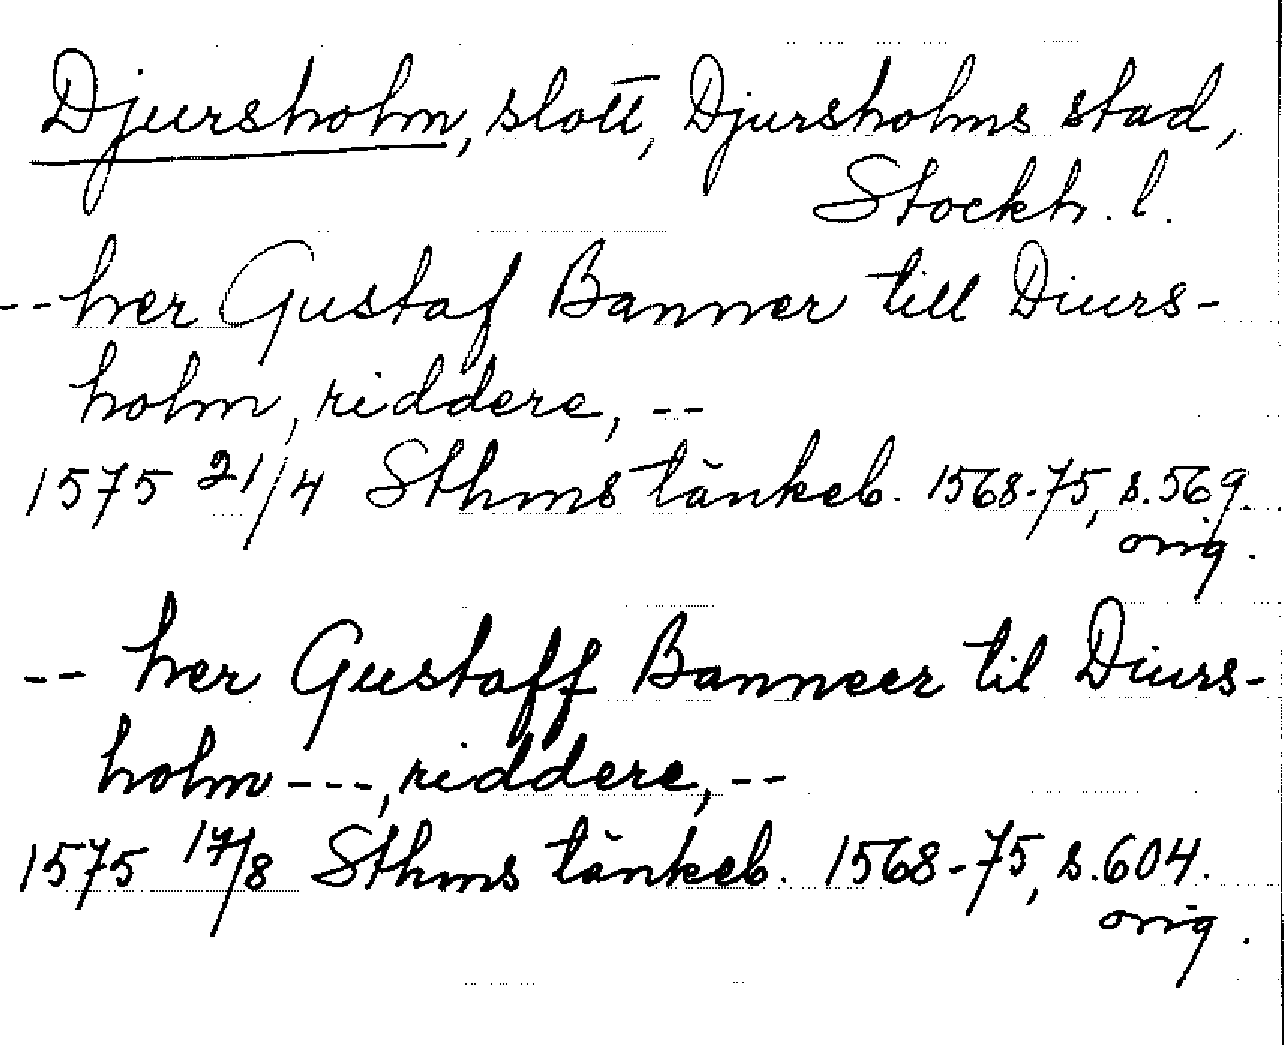 Djursholm, slott, Djursholms stad,
Stockh. l.
-- her Gustaf Banner till Diurs-
holm, riddere, --
1575 21/4 Sthms tänkeb. 1568-75, s. 569.
orig.
-- her Gustaff Banneer til Diurs-
holm ---, riddere, --
1575 17/8 Sthms tänkeb. 1568-75, s. 604.
orig.